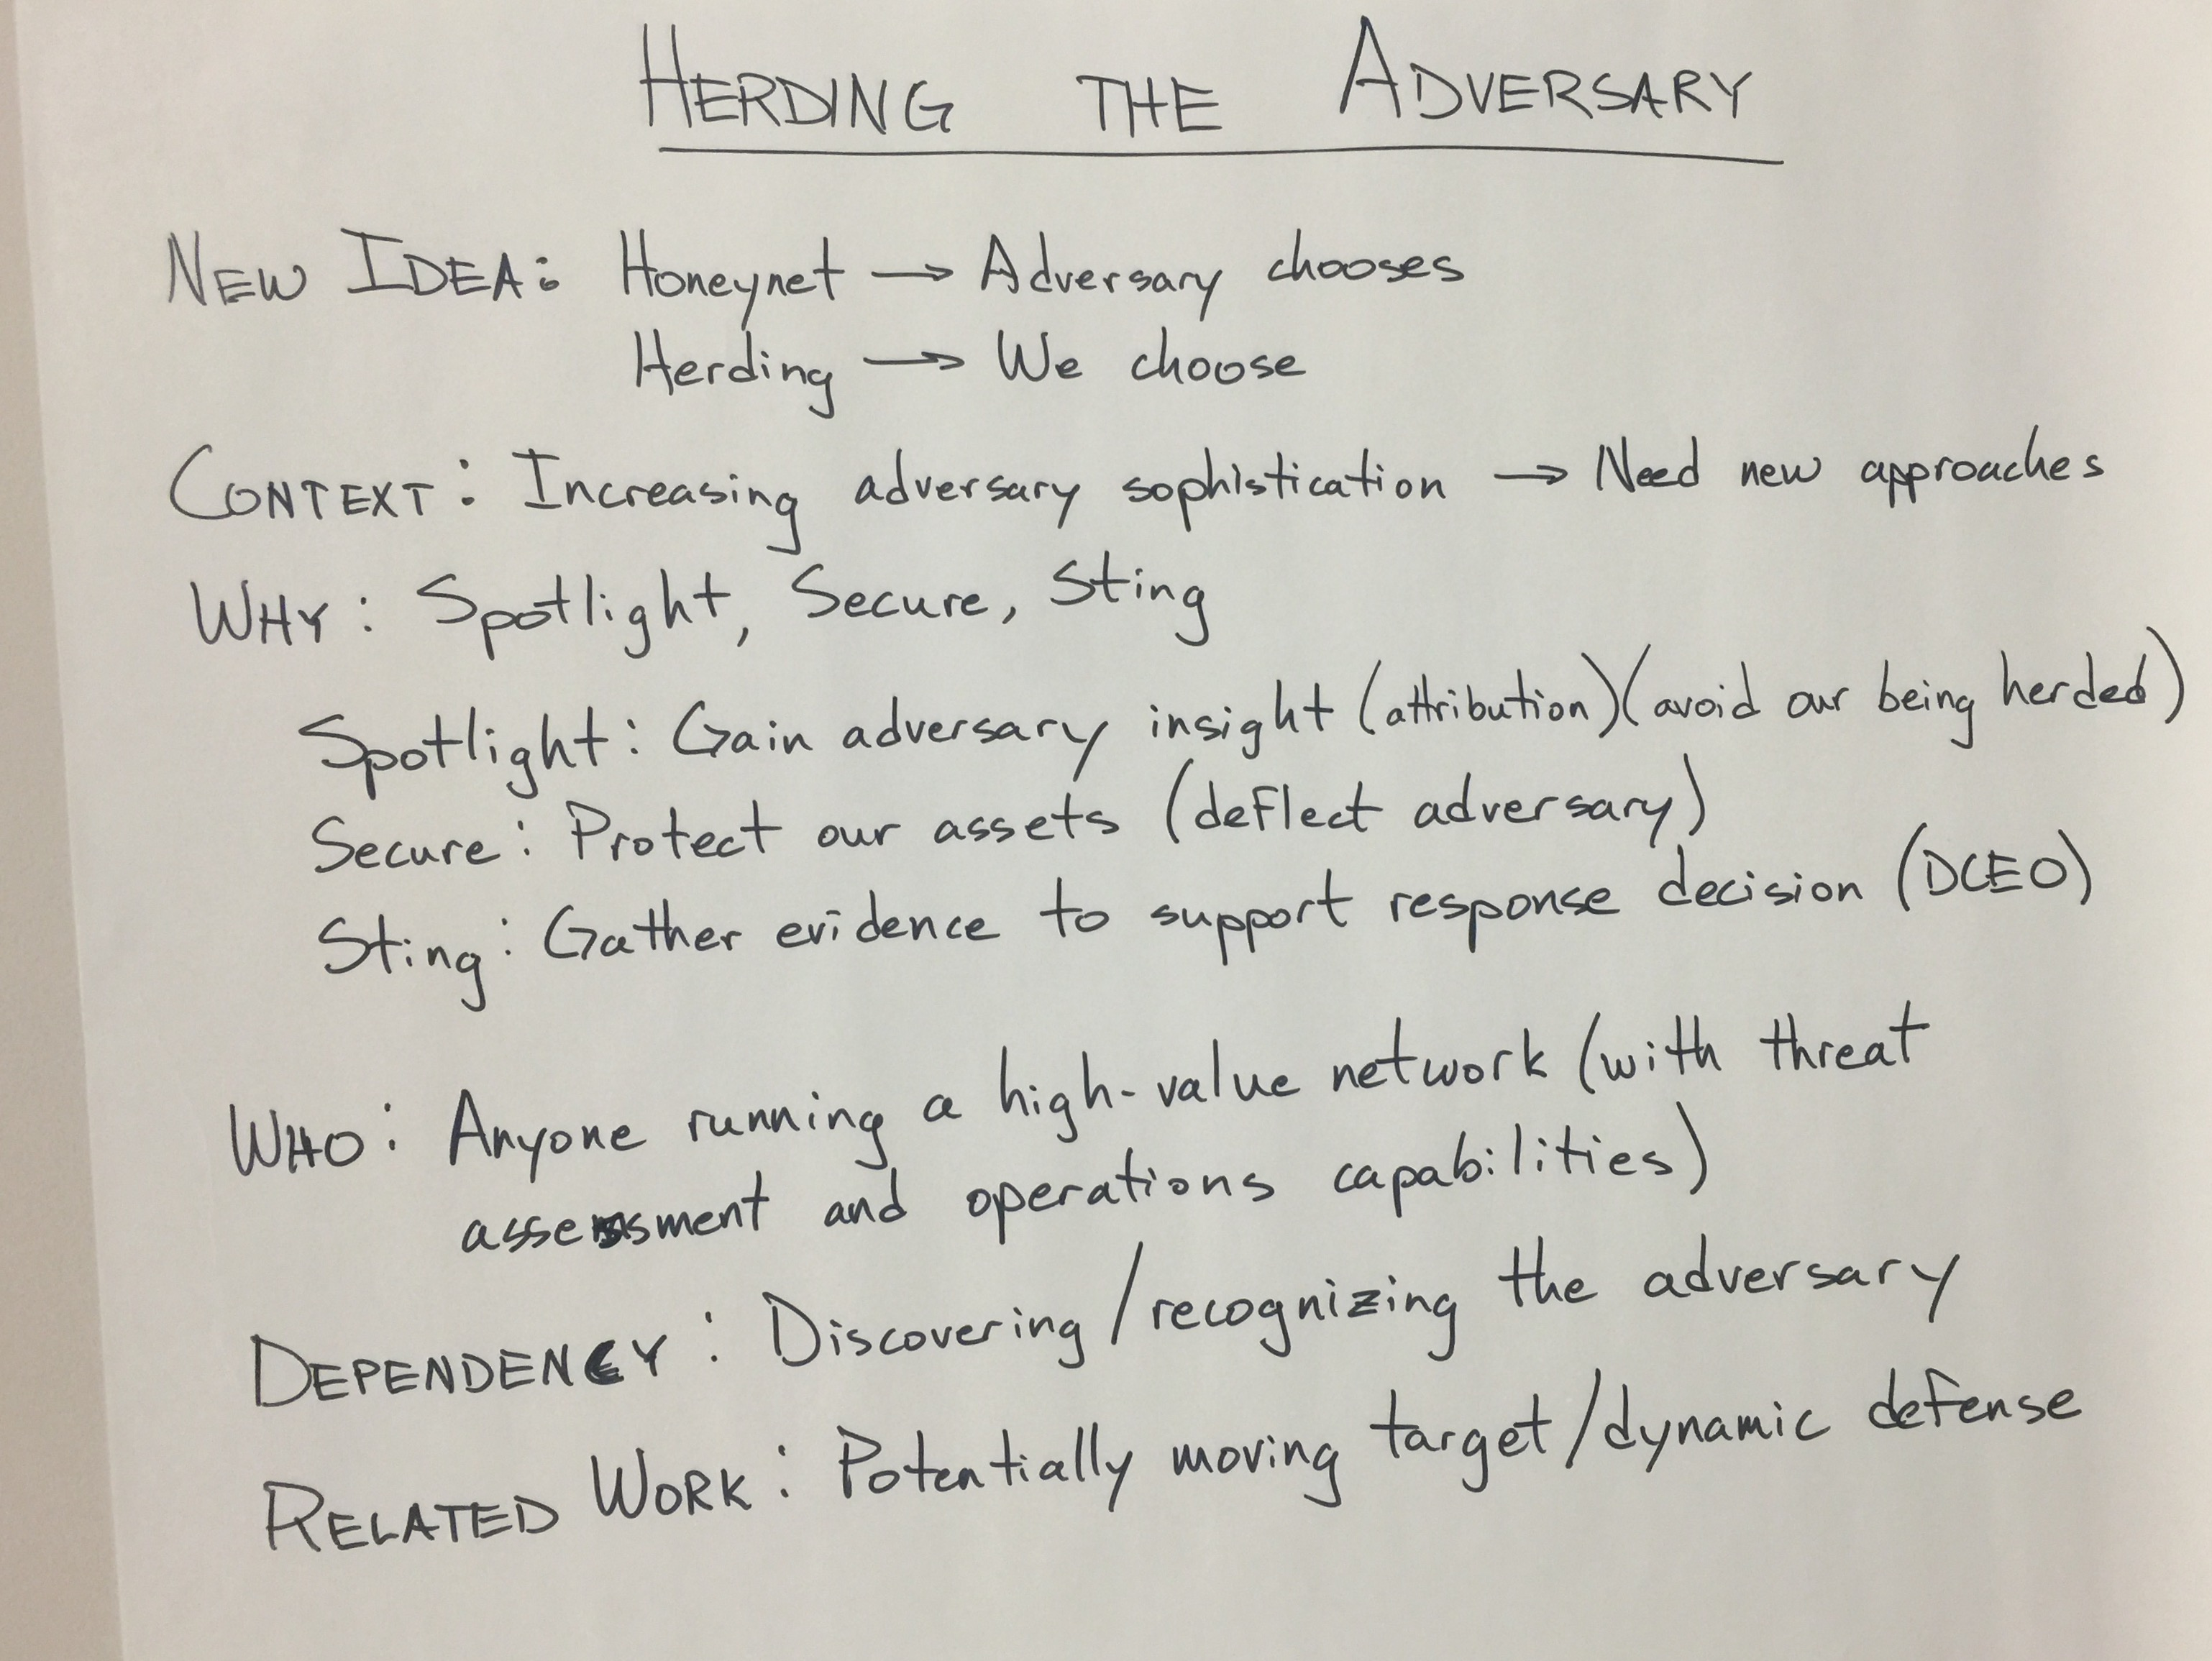 HERDING THE ADVERSARY
NEW IDEA: Honeynet → Adversary chooses
Herding → We choose
CONTEXT: Increasing adversary sophistication → Need new approaches
WHY: Spotlight, Secure, Sting
Spotlight: Gain adversary insight (attribution)(avoid our being herded)
Secure: Protect our assets (deflect adversary)
Sting: Gather evidence to support response decision (DCEO)
WHO: Anyone running a high-value network (with threat
assessment and operations capabilities)
DEPENDENCY: Discovering/recognizing the adversary
RELATED WORK: Potentially moving target/dynamic defense